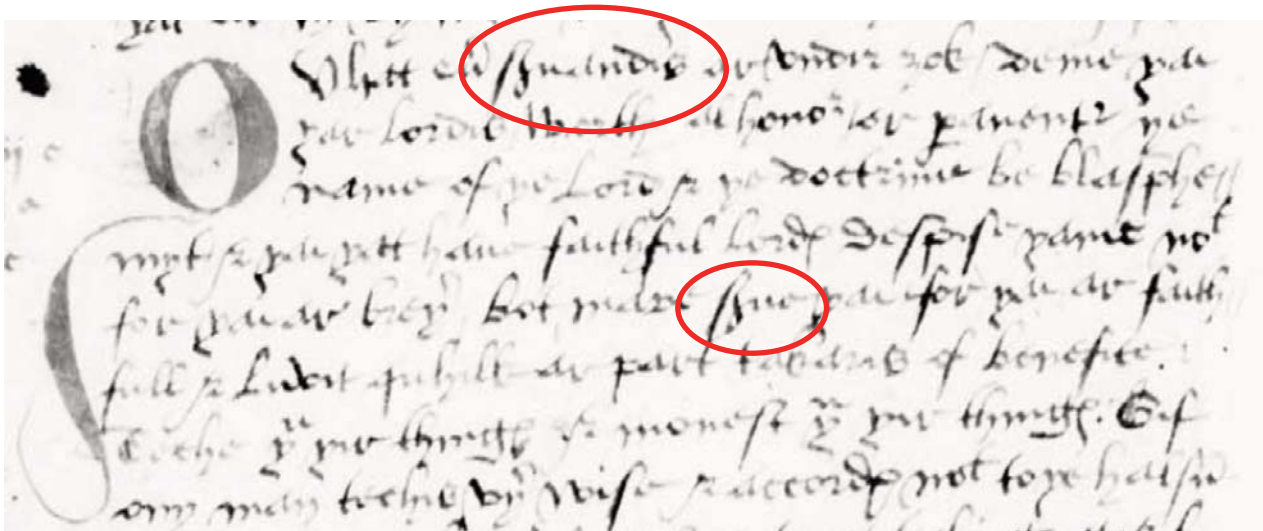 OVhatt eu͛ s͛uandis ar vndir yok / deme yai
yar lordis worthi al honor / or ꝑauentr ye
name of ye Lord & ye doctrine be blasphe
myt & yai yatt haue faithful lordꝭ despise yame not
for yai ar brey͛ bot mare s͛ue yai for yai ar faith
full & Luvit quhilk ar part takaris of benefice.
Teche yu yir thingꝭ & monest yu yir thingꝭ. Gif
ony man techis vy͛ wise & accordꝭ not to ye halsū